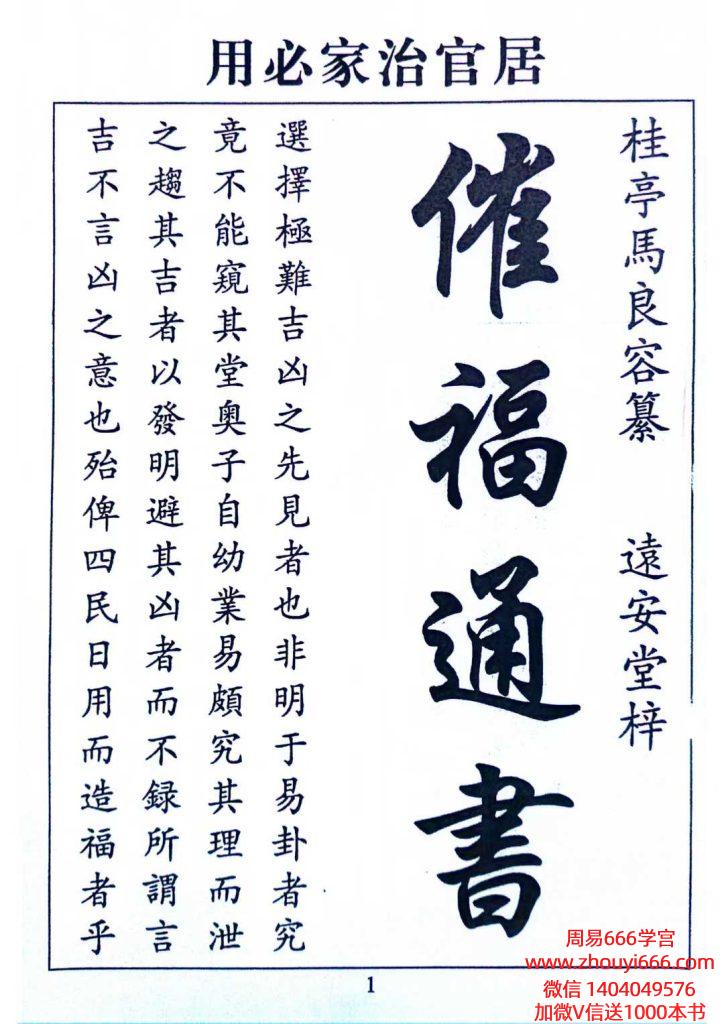 居官治家必用
桂亭馬良容纂 遠安堂梓
催福通書
選擇極難吉凶之先見者也非明于易卦者究
竟不能窺其堂奧子自幼業易頗究其理而泄
之趨其吉者以發明避其凶者而不録所謂言
吉不言凶之意也殆俾四民日用而造福者乎
1
周易666学宫
www.zhouyi666.com
微信 1404049576
加微V信送1000本书